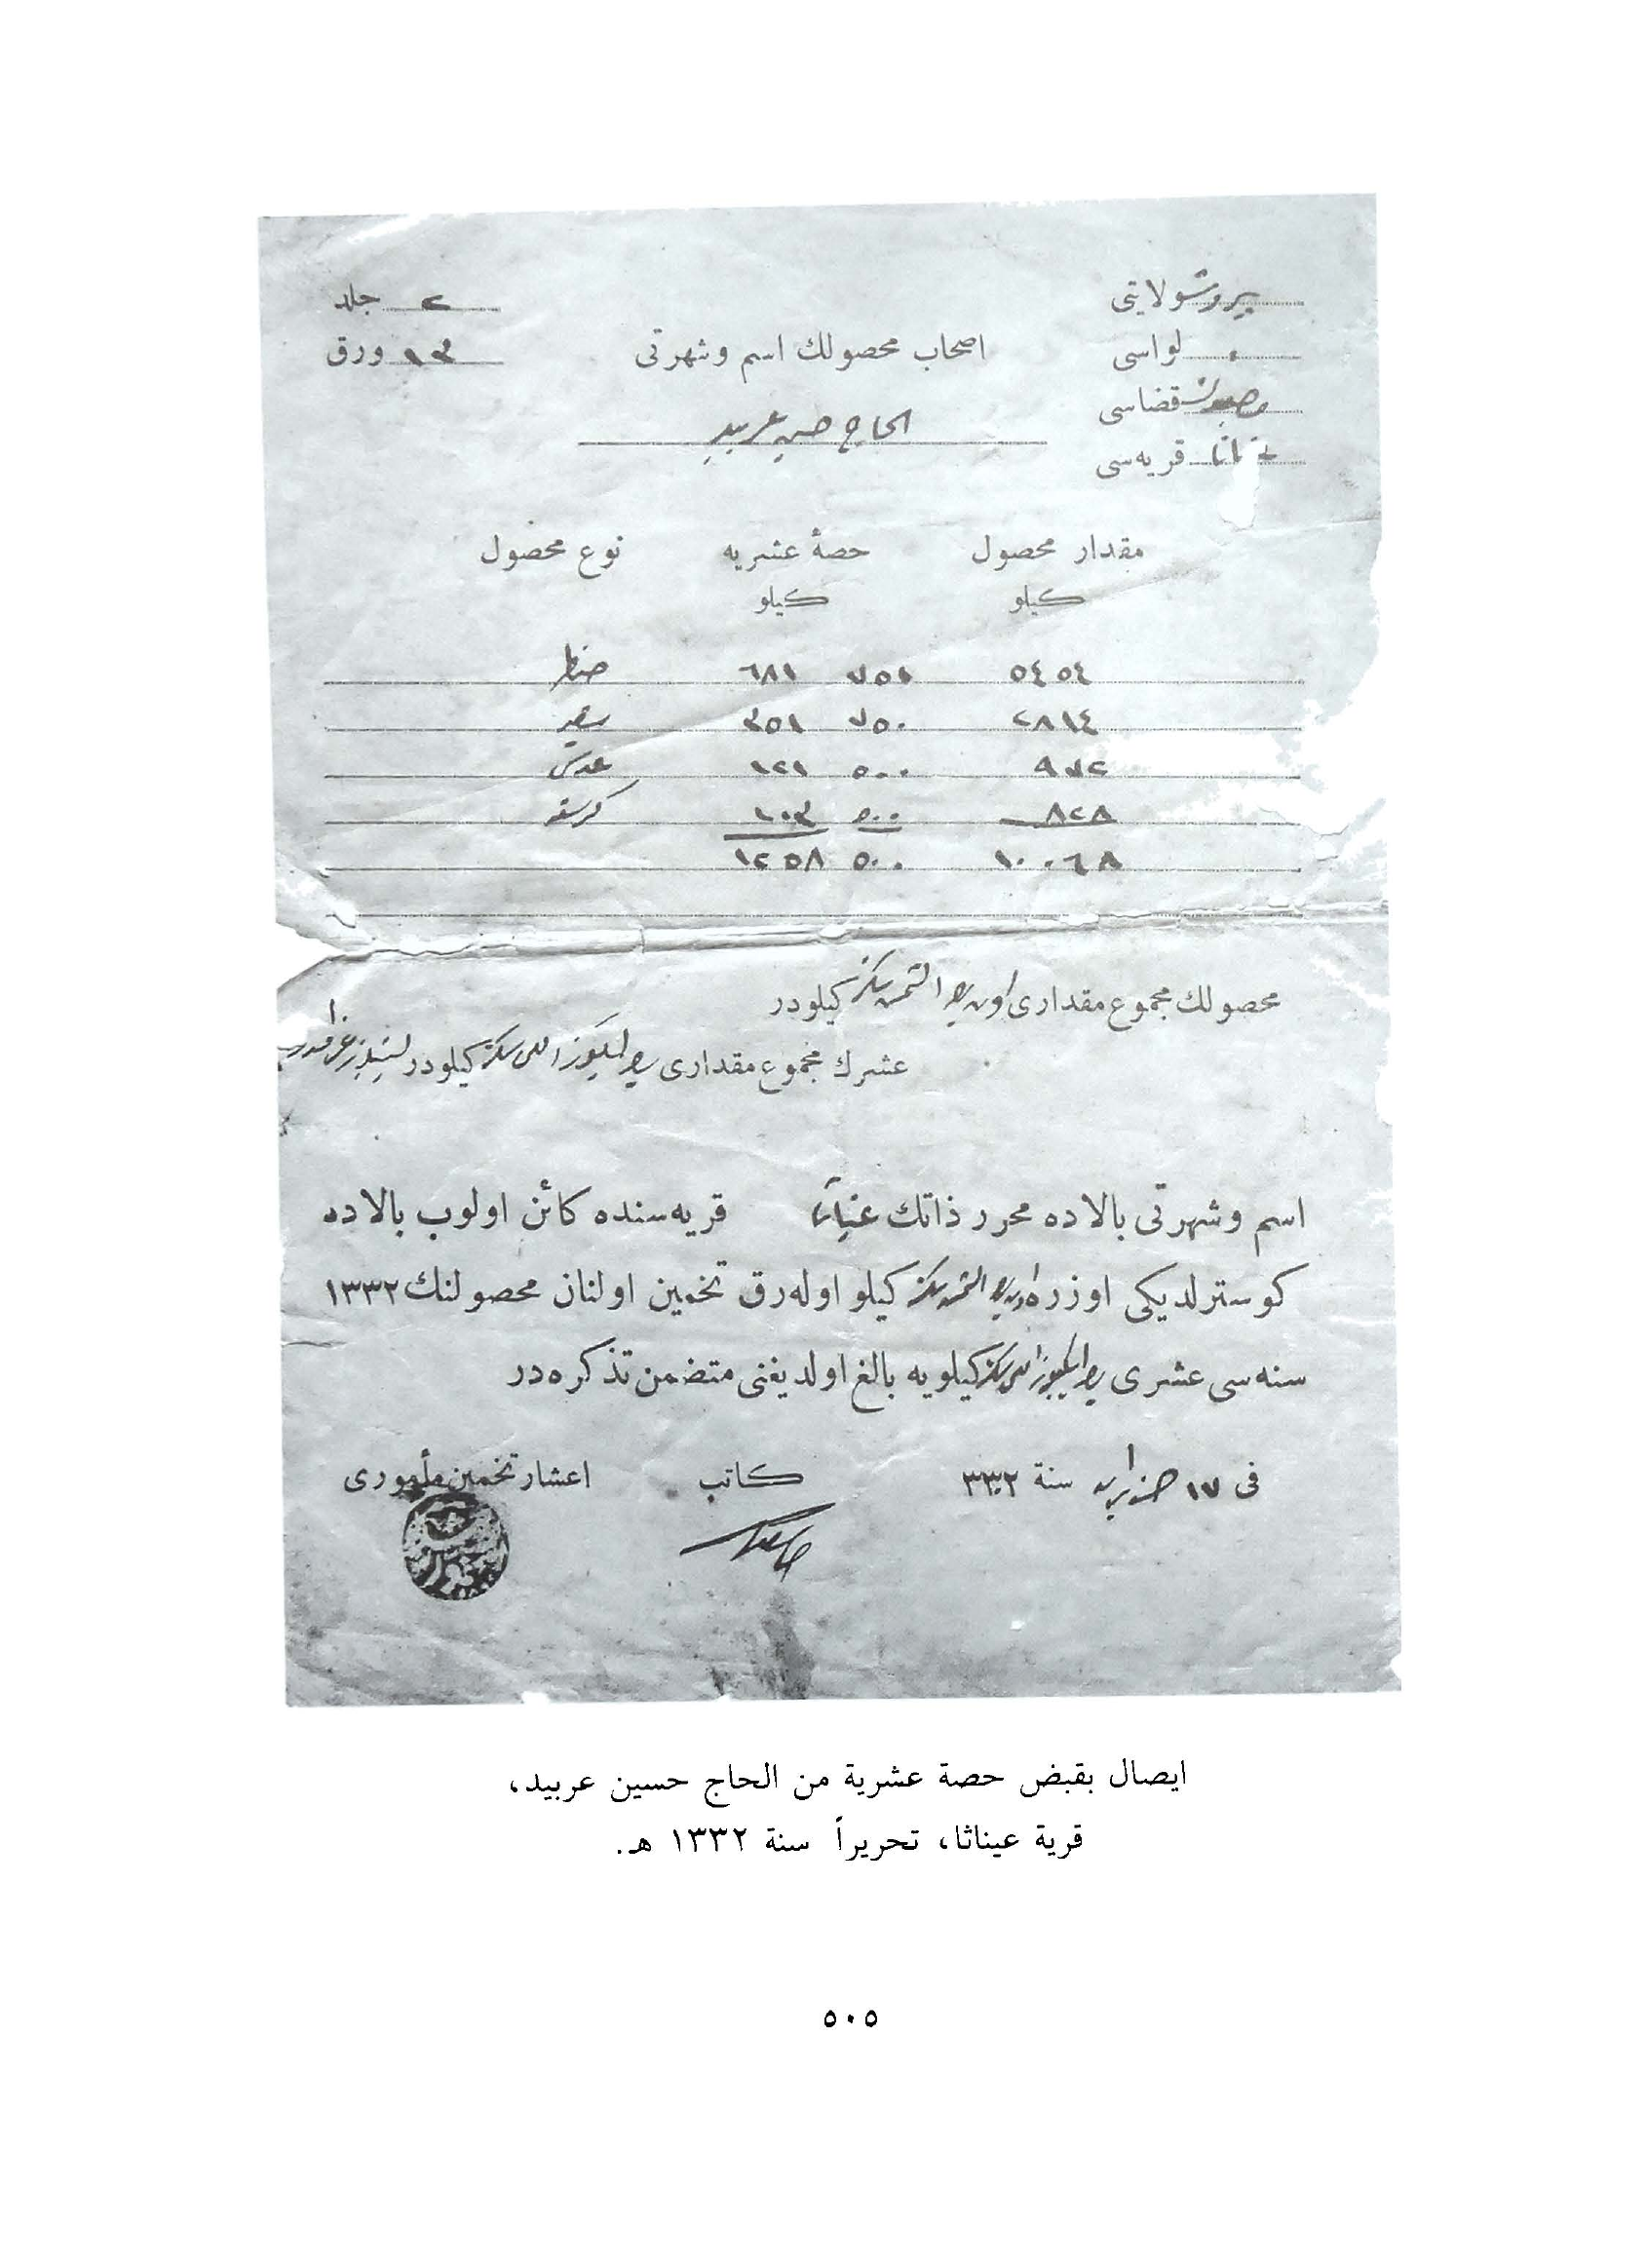 بيروت ولايتی
لواسی
قضاسی
قريه سی
٢ جلد
١٣ ورق
اصحاب محصولك اسم وشهرتی
الحاج حسين عربيد
مقدار محصول حصۀ عشريه نوع محصول
كيلو كيلو
٥٤٥٤ ٧٥١ ٦٨١ حنطه
٢٨١٤ ٧٥٠ ٣٥١ شعير
٩٧٢ ٥٠٠ ١٢١ عدس
٨٢٨ ٥٠٠ ١٠٣ كرسنه
١٠٠٦٨ ٥٠٠ ١٢٥٨
محصولك مجموع مقداری اون بيك التمش سكز كيلودر
عشرك مجموع مقداری بيك ايكيوز اللی سكز كيلودر
اسم وشهرتی بالاده محرر ذاتك عيناثا قريه سنده كائن اولوب بالاده
كوسترلديكی اوزره اون بيك التمش سكز كيلو اوله رق تخمين اولنان محصولنك ١٣٣٢
سنه سی عشری بيك ايكيوز اللی سكز كيلويه بالغ اولديغنی متضمن تذكره در
فی ١٧ حزيران سنة ٣٣٢
كاتب
اعشار تخمين مأموری
ايصال بقبض حصة عشرية من الحاج حسين عربيد،
قرية عيناثا، تحريراً سنة ١٣٣٢ هـ.
٥٠٥